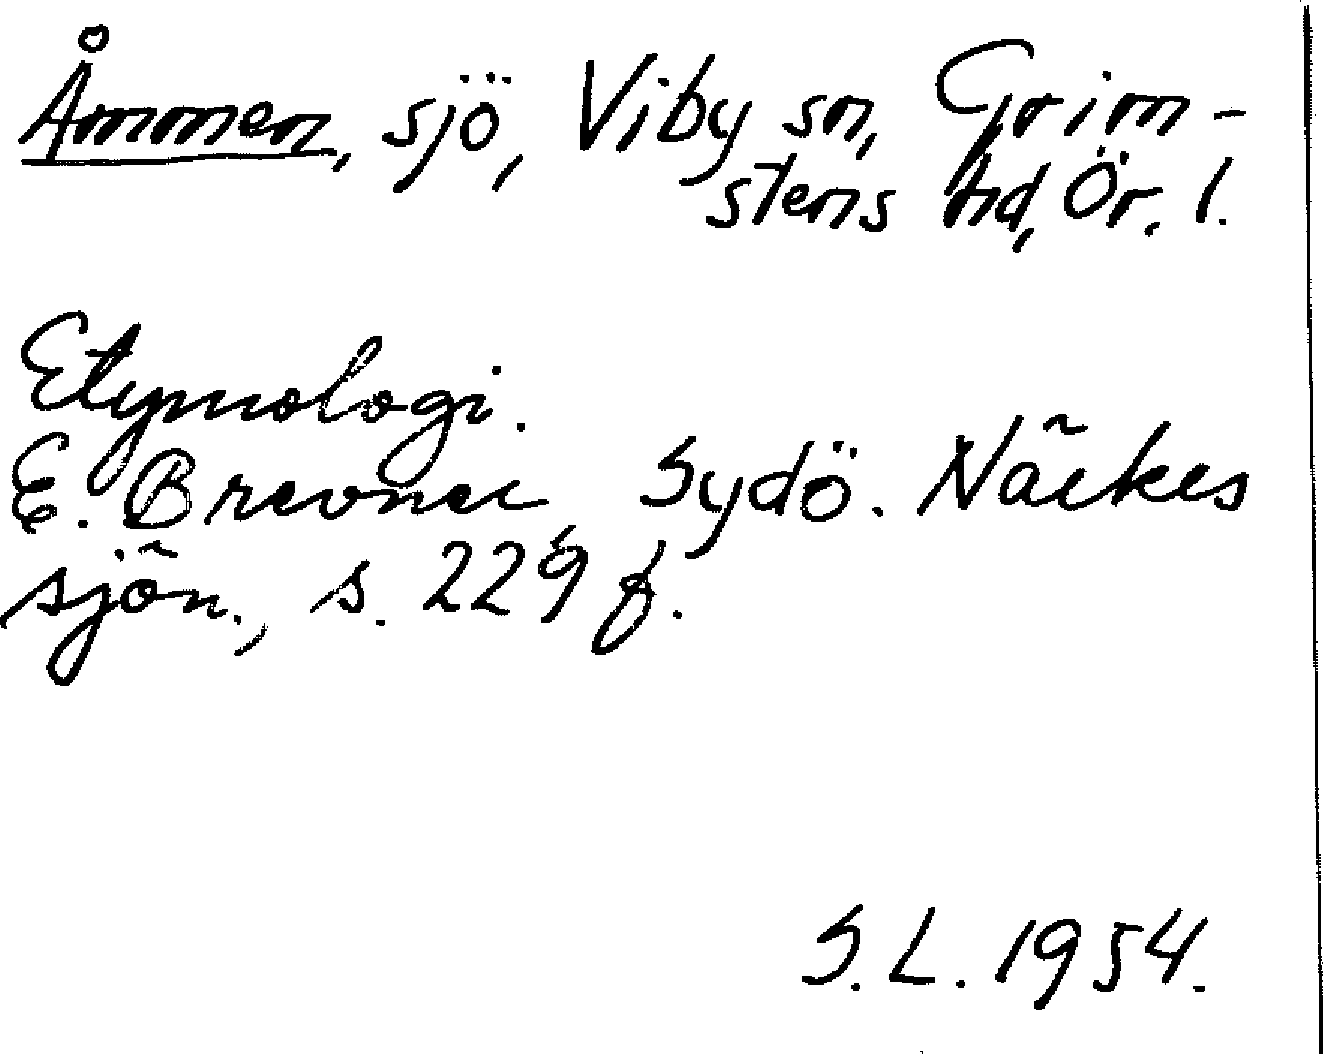 Åmmen, sjö, Viby sn, Grim-
stens hd, Ör. l.
Etymologi.
E. Brevner, Sydö. Närkes
sjön., s. 229 f.
S. L. 1954.